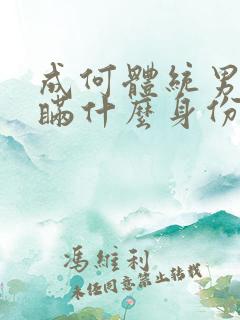 成何體統男
瞞什麼身份
馮維利
未经同意禁止转载